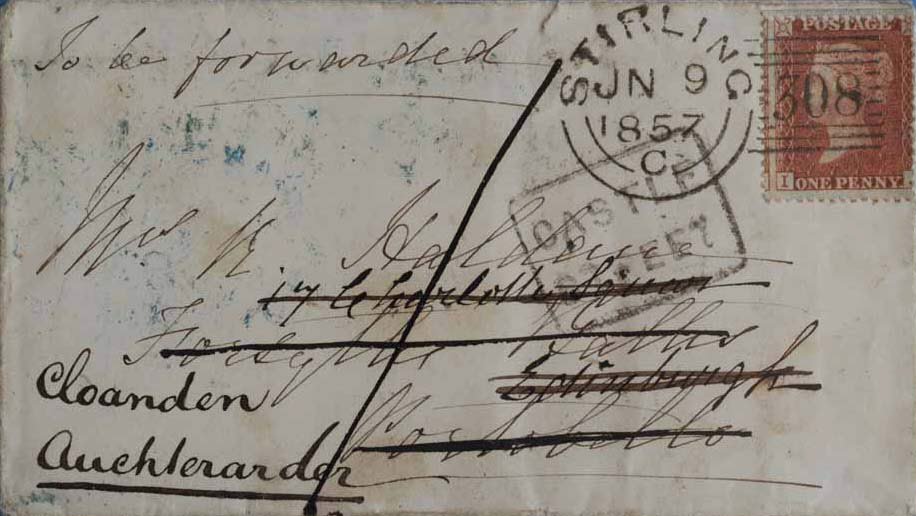 To be forwarded
STIRLING
JN 9
1857
C
POSTAGE
308
I ONE PENNY
CASTLE
STREET
Mrs R Haldane
17 Charlotte Square
Forsyths Falls
Edinburgh
Portobello
Cloanden
Auchterarder